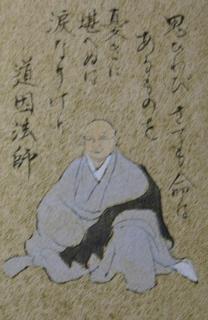 思ひわびさても命は
あるものを
憂きに
堪へぬは
涙なりけり
道因法師